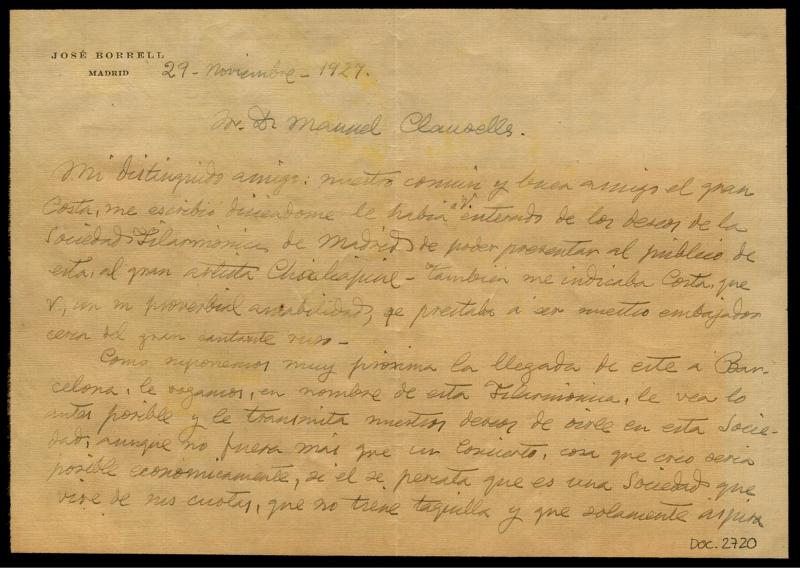 JOSÉ BORRELL
MADRID
29 - Noviembre - 1927.
Sr. Dn Manuel Clausells.
Mi distinguido amigo: nuestro común y buen amigo el gran
Costa, me escribió diciendome le había a V. enterado de los deseos de la
Sociedad Filarmónica de Madrid, de poder presentar al público de
esta, al gran artista - También me indicaba Costa, que
V., en su proverbial amabilidad, se prestaba a ser nuestro embajador
cerca del gran cantante ruso -
Como suponemos muy próxima la llegada de este a Bar-
celona, le rogamos, en nombre de esta Filarmónica, le vea lo
antes posible y le transmita nuestros deseos de oirle en esta Socie-
dad, aunque no fuera más que un Concierto, cosa que creo sería
posible economicamente, si el se percata que es una Sociedad que
vive de sus cuotas, que no tiene taquilla y que solamente aspira
DOC. 2720